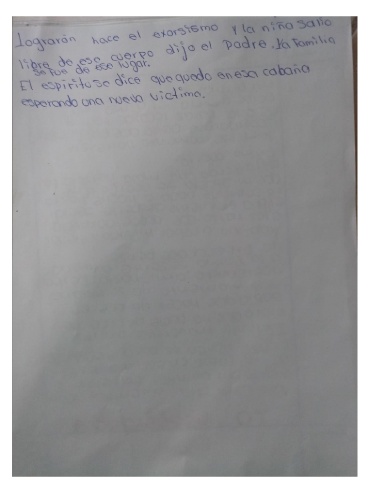 Lograrón hace el exorsismo y la niña salio
libre de ese cuerpo dijo el padre. la Familia
se fue de ese lugar.
El espiritu se dice que quedo en esa cabaña
esperando una nueva victima.